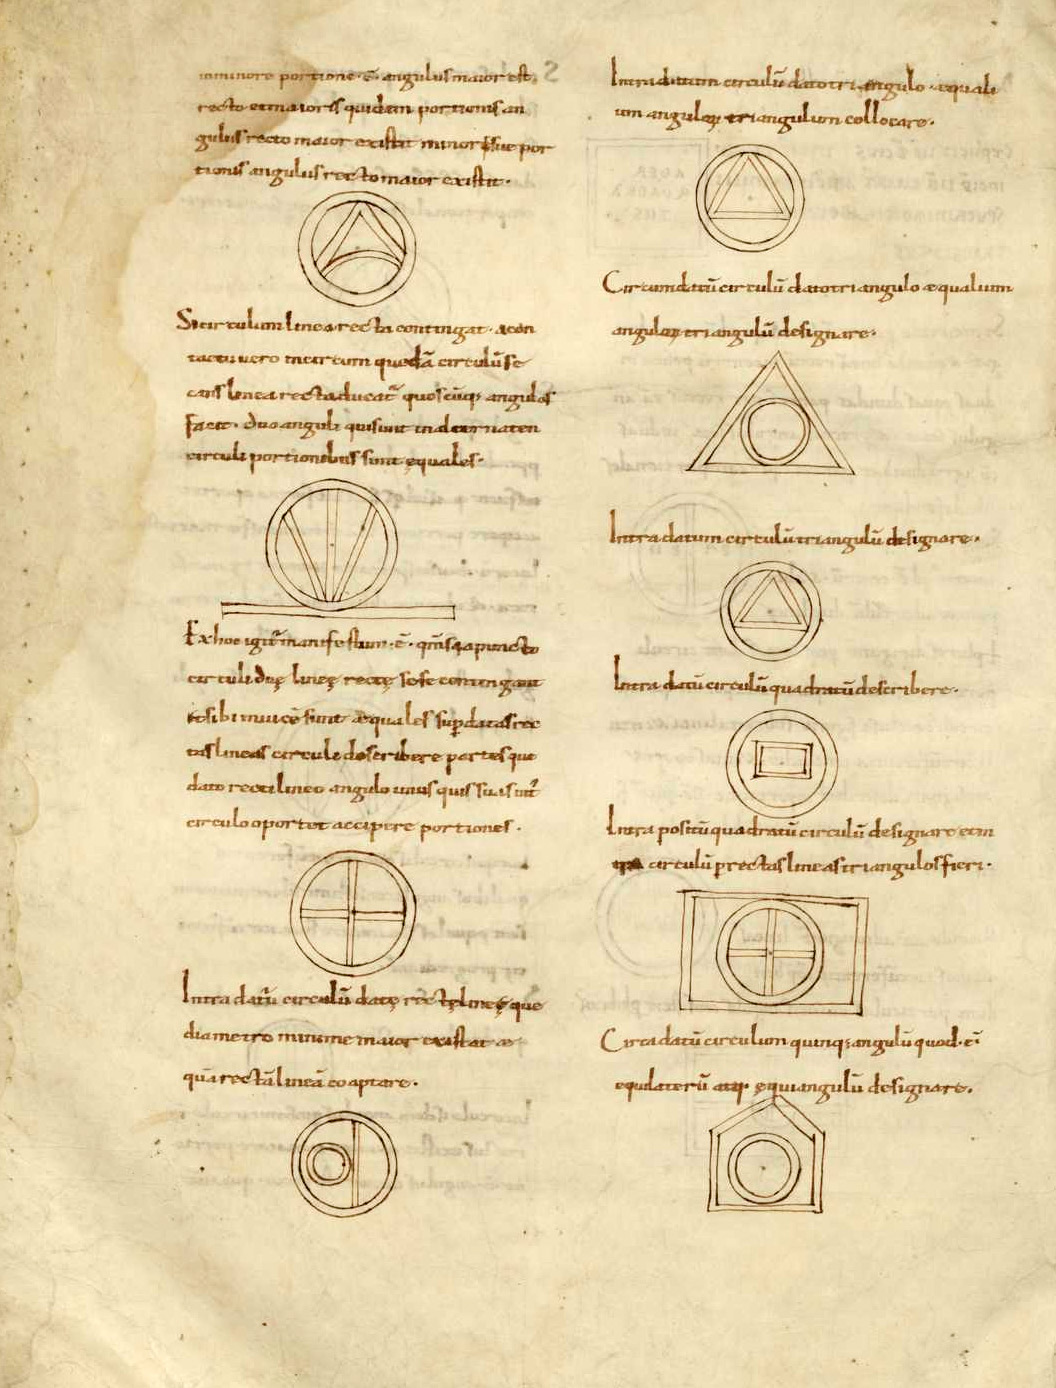 in minore portione · ē · angulus maior est,
recto et maioris quidem portionis an
gulus recto maior existit minoris sue por
tionis angulus recto maior existit ·
Si circulum linea recta contingat · a con
tactu vero in circum quedā circulū se
cans linea recta ducat̄ quoscūq; angulos
facit · duo anguli qui sunt in alternaten
circuli portionibus sunt ęquales ·
Ex hoc igit̄ manifestum · ē · qm̄ si a puncto
circuli duę lineę rectę sese contingant
sibi inuicē sunt æquales sup datas rec
tas lineas circuli describere partes que
dato rectilineo angulo unus quis
circulo oportet accipere portiones ·
Intra datū circulū datę rectę lineę que
diametro minime maior existat æ
quā rectā lineā coaptare ·
Intra datum circulū dato triangulo · equali
um anguloꝝ triangulum collocare ·
Circum datū circulū dato triangulo æqualium
anguloꝝ triangulū designare ·
Intra datum circulū triangulū designare ·
Intra datū circulū quadratū describere ·
Intra positū quadratū circulū designare
circulū p rectas lineas triangulos fieri ·
Circa datū circulum quinq; angulū quod · ē ·
equilaterū atq; ęquiangulū designare ·